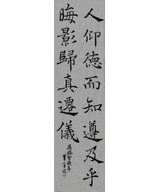 人仰德而知遵及乎
晦影歸真遷儀